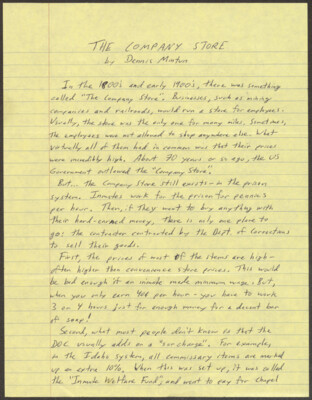 THE COMPANY STORE
by Dennis Mintun
In the 1800's and early 1900's, there was something
called "The Company Store". Businesses, such as mining
companies and railroads, would run a store for employees.
Usually, the store was the only one for many miles. Sometimes,
the employees were not allowed to shop anywhere else. What
virtually all of them had in common was that their prices
were incredibly high. About 90 years or so ago, the US
Government outlawed the "Company Store".
But... the Company Store still exists - in the prison
system. Inmates work for the prison for pennies
per hour. Then, if they want to buy anything with
their hard-earned money, there is only one place to
go: the contractor contracted by the Dept. of Corrections
to sell their goods.
First, the prices of most of the items are high -
often higher than convenience store prices. This would
be bad enough if an inmate made minimum wage. But,
when you only earn 40¢ per hour - you have to work
3 or 4 hours just for enough money for a decent bar
of soap!
Second, what most people don't know is that the
DOC usually adds on a "surcharge". For example,
in the Idaho system, all commissary items are marked
up an extra 10%. When this was set up, it was called
the "Inmate Welfare Fund", and went to pay for chapel